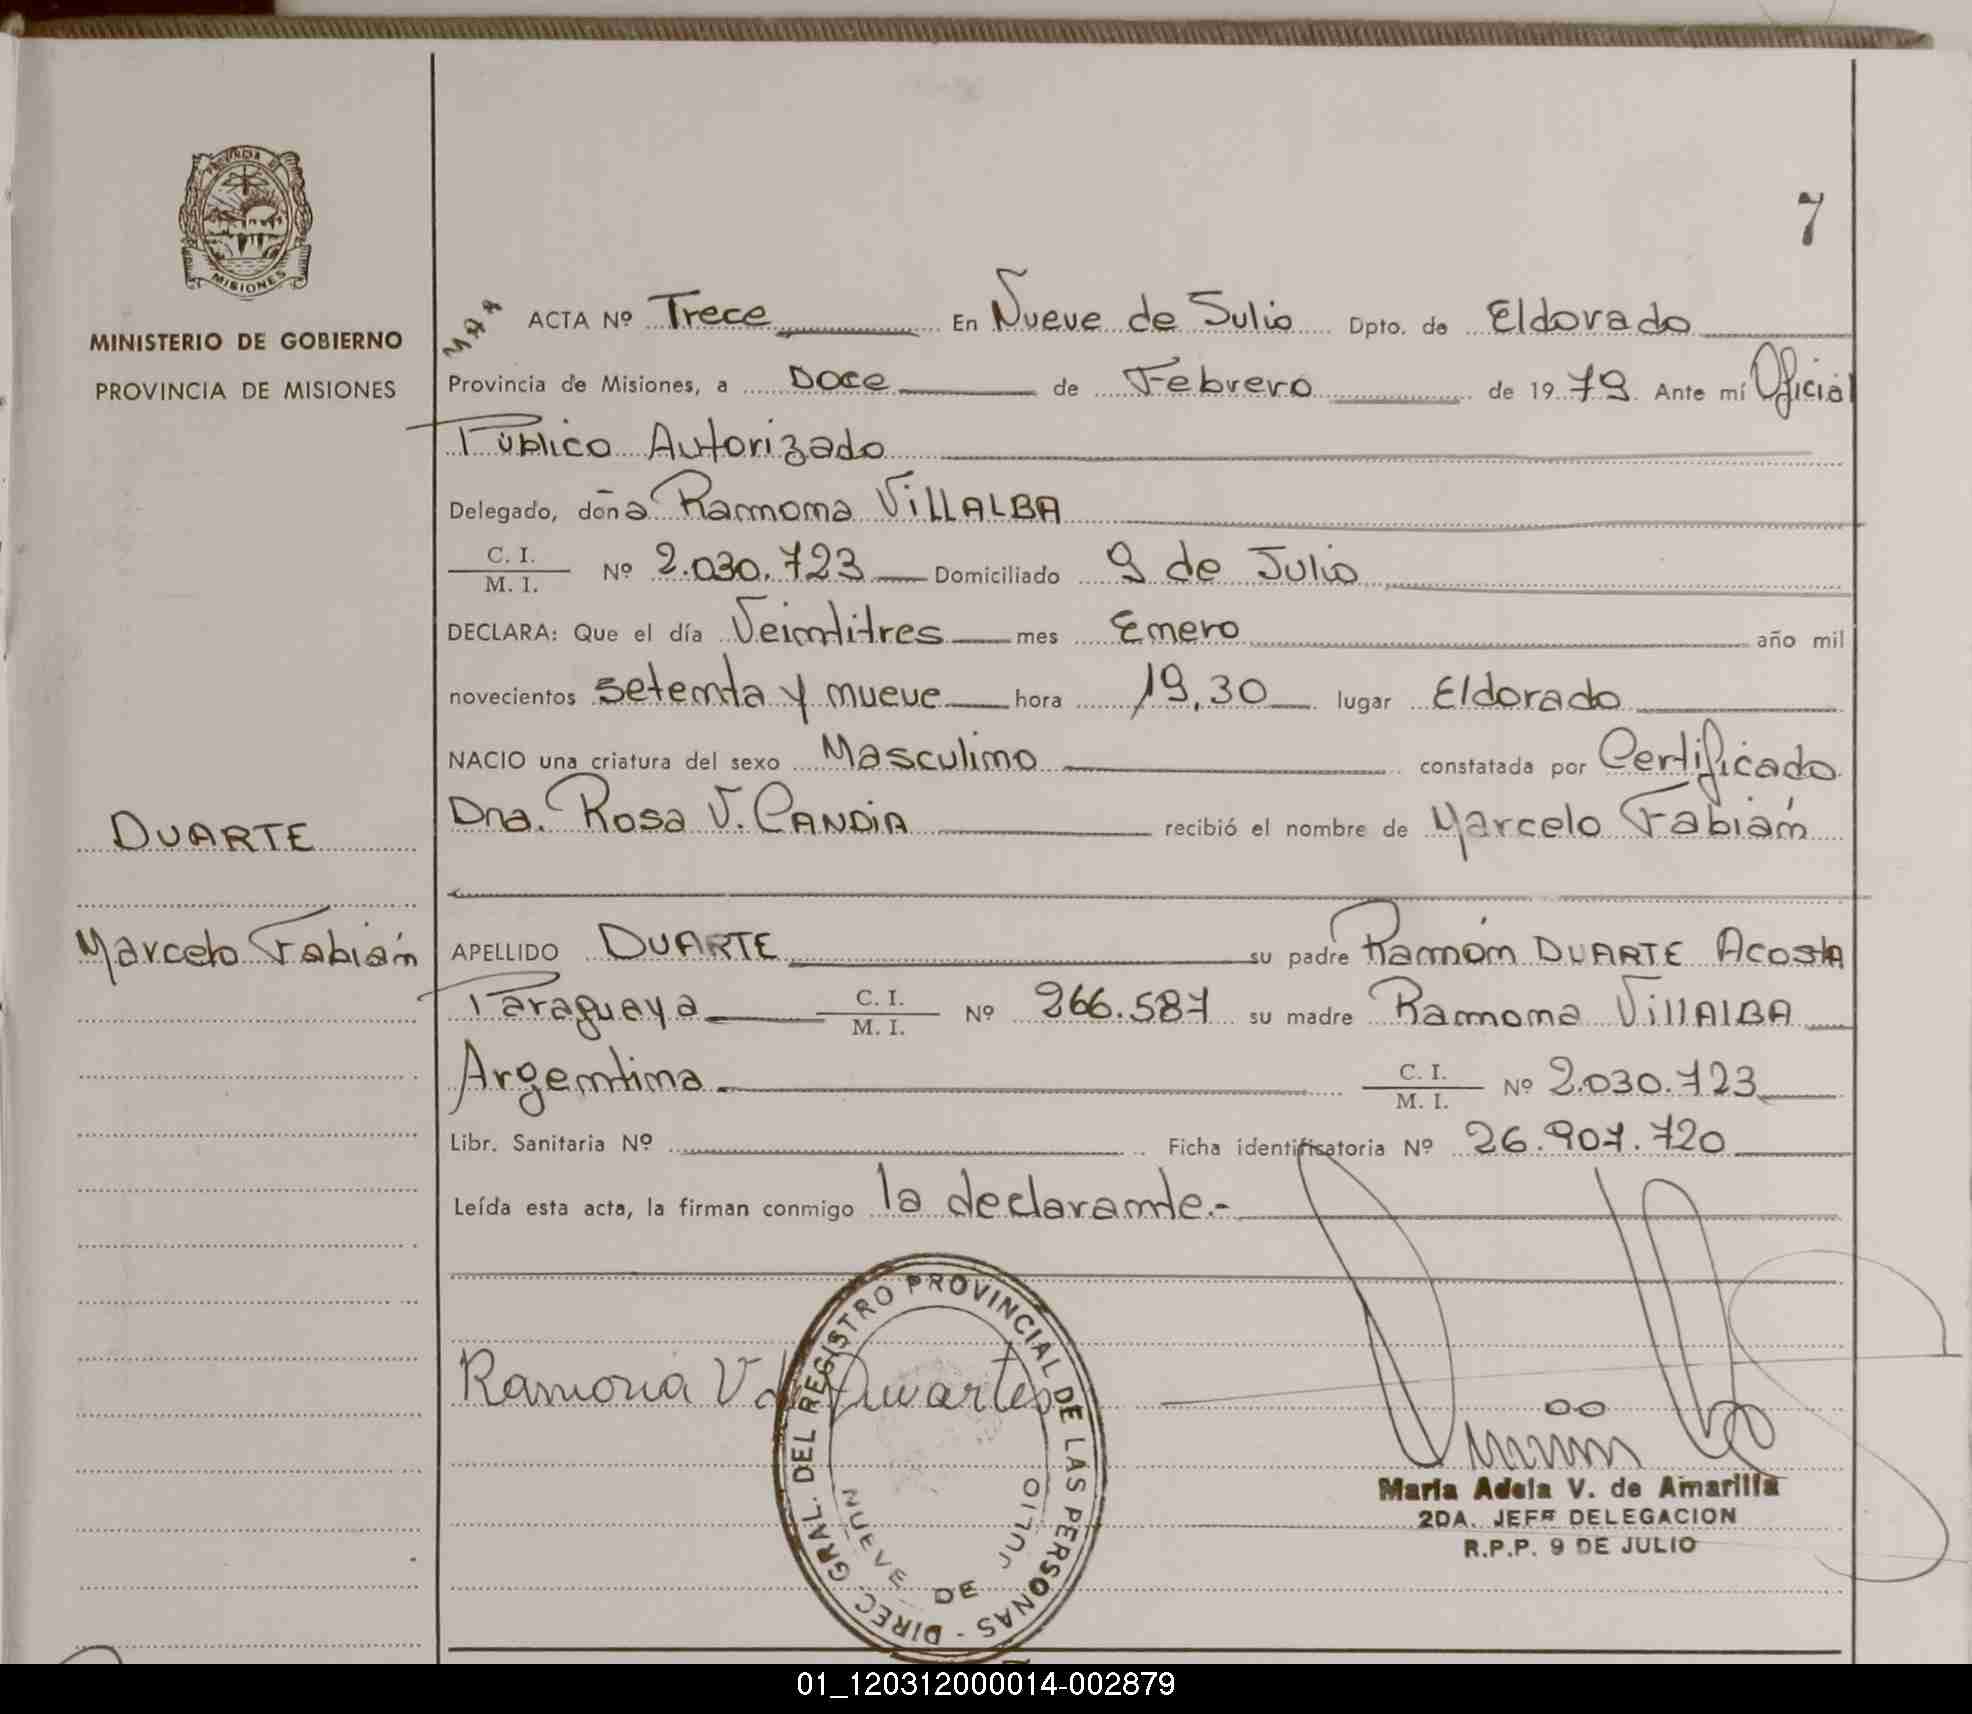 PROVINCIA DE
MISIONES
MINISTERIO DE GOBIERNO
PROVINCIA DE MISIONES
DUARTE
Marcelo Fabián
7
MAA
ACTA Nº Trece En Nueve de Julio Dpto. de Eldorado
Provincia de Misiones, a Doce de Febrero de 1979 Ante mí Oficial
Público Autorizado
Delegado, doña Ramona VILLALBA
C. I.
M. I. Nº 2.030.723 Domiciliado 9 de Julio
DECLARA: Que el día Veintitres mes Enero año mil
novecientos setenta y nueve hora 19,30 lugar Eldorado
NACIO una criatura del sexo Masculino constatada por Certificado
Dra. Rosa V. CANDIA recibió el nombre de Marcelo Fabián
APELLIDO DUARTE su padre Ramón DUARTE ACOSTA
Paraguaya C. I.
M. I. Nº 266.587 su madre Ramona VILLALBA
Argentina C. I.
M. I. Nº 2.030.723
Libr. Sanitaria Nº Ficha identificatoria Nº 26.907.720
Leída esta acta, la firman conmigo la declarante.-
Ramona V de Duartes
DIREC. GRAL. DEL REGISTRO PROVINCIAL DE LAS PERSONAS -
NUEVE DE JULIO
Maria Adela V. de Amarilla
2DA. JEFE DELEGACION
R.P.P. 9 DE JULIO
01_120312000014-002879